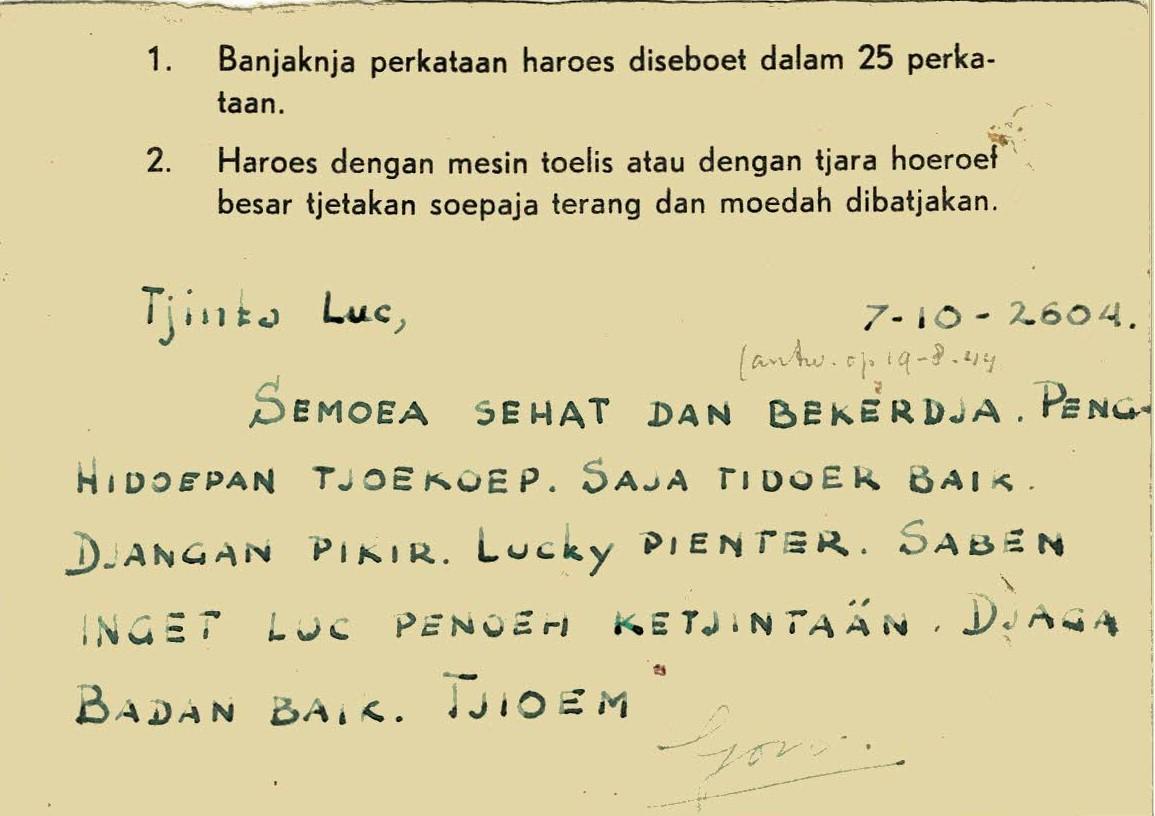 1. Banjaknja perkataan haroes diseboet dalam 25 perka-
taan.
2. Haroes dengan mesin toelis atau dengan tjara hoeroef
besar tjetakan soepaja terang dan moedah dibatjakan.
Tjinta Luc,
7-10-2604.
(antw. op 19-8-44
SEMOEA SEHAT DAN BEKERDJA. PENG-
HIDOEPAN TJOEKOEP. SAJA TIDOER BAIK.
DJANGAN PIKIR. Lucky PIENTER. SABEN
INGET LUC PENOEH KETJINTAÄN. DJAGA
BADAN BAIK. TJIOEM